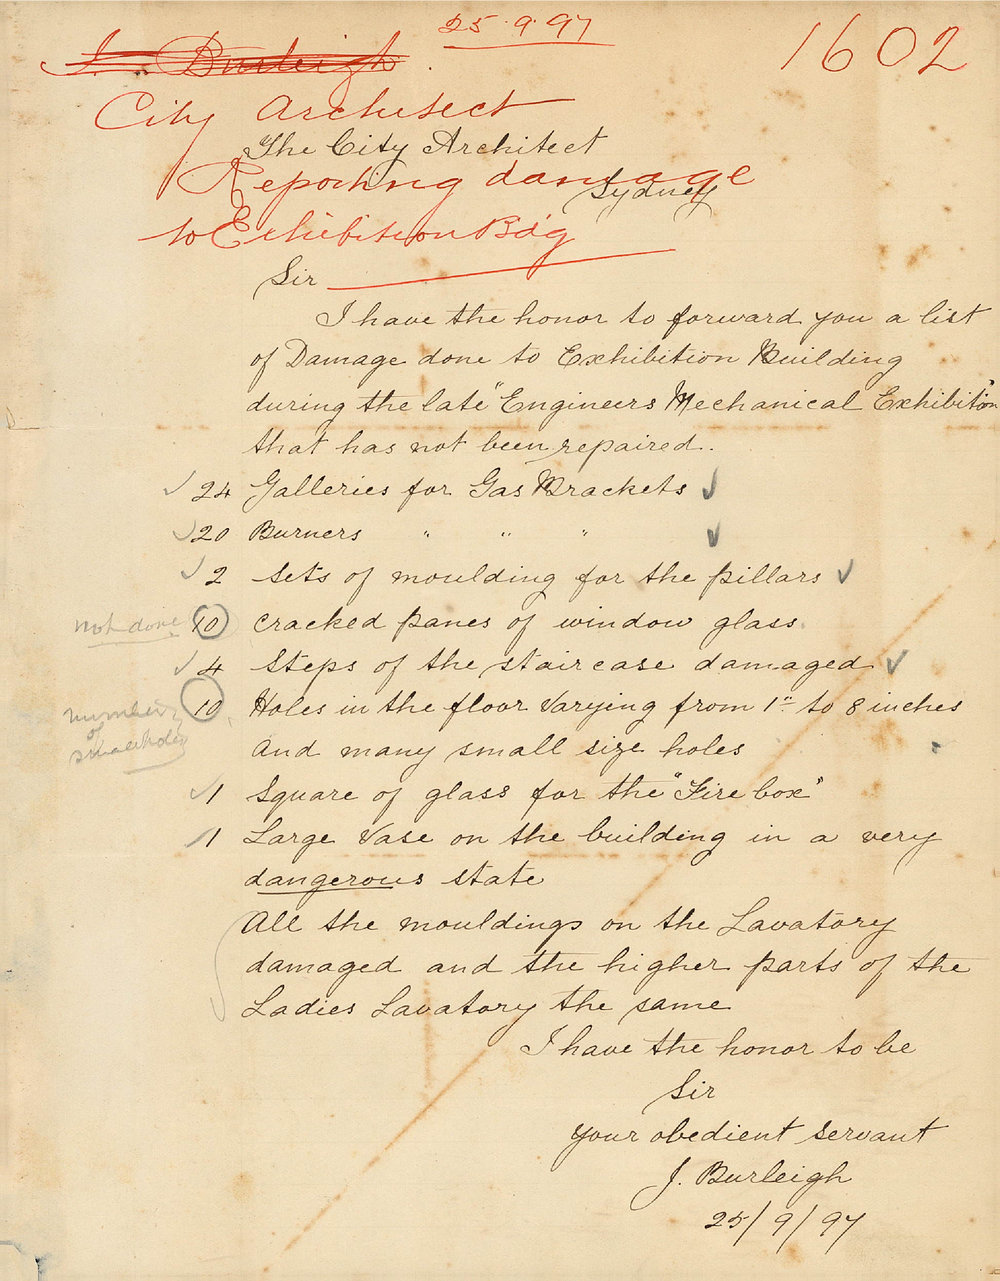 25.9.97
1602
J. Burleigh
City Architect
The City Architect
Reporting damage
Sydney
to Exhibition Bdg
Sir
I have the honor to forward you a list
of Damage done to Exhibition Building
during the late "Engineers Mechanical Exhibition"
that has not been repaired.
✓ 24 Galleries for Gas Brackets ✓
✓ 20 Burners " " " ✓
✓ 2 Sets of moulding for the pillars ✓
Not done 10 cracked panes of window glass.
✓ 4 Steps of the staircase damaged ✓
10 Holes in the floor varying from 1" to 8 inches
number
of
small holes
And many small size holes
✓ 1 Square of glass for the "Fire box"
1 Large Vase on the building in a very
dangerous state
All the mouldings on the Lavatory
damaged and the higher parts of the
Ladies Lavatory the same
I have the honor to be
Sir
your obedient servant
J. Burleigh
25/9/97